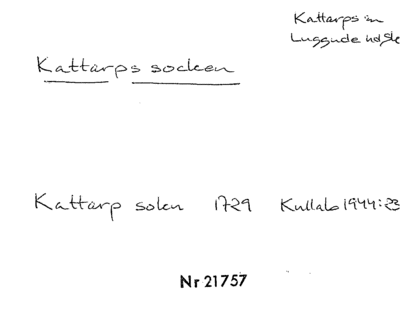 Kattarps sn
Luggude hd, Sk
Kattarps socken
Kattarp solen 1729 Kullab 1944:23
Nr 21757